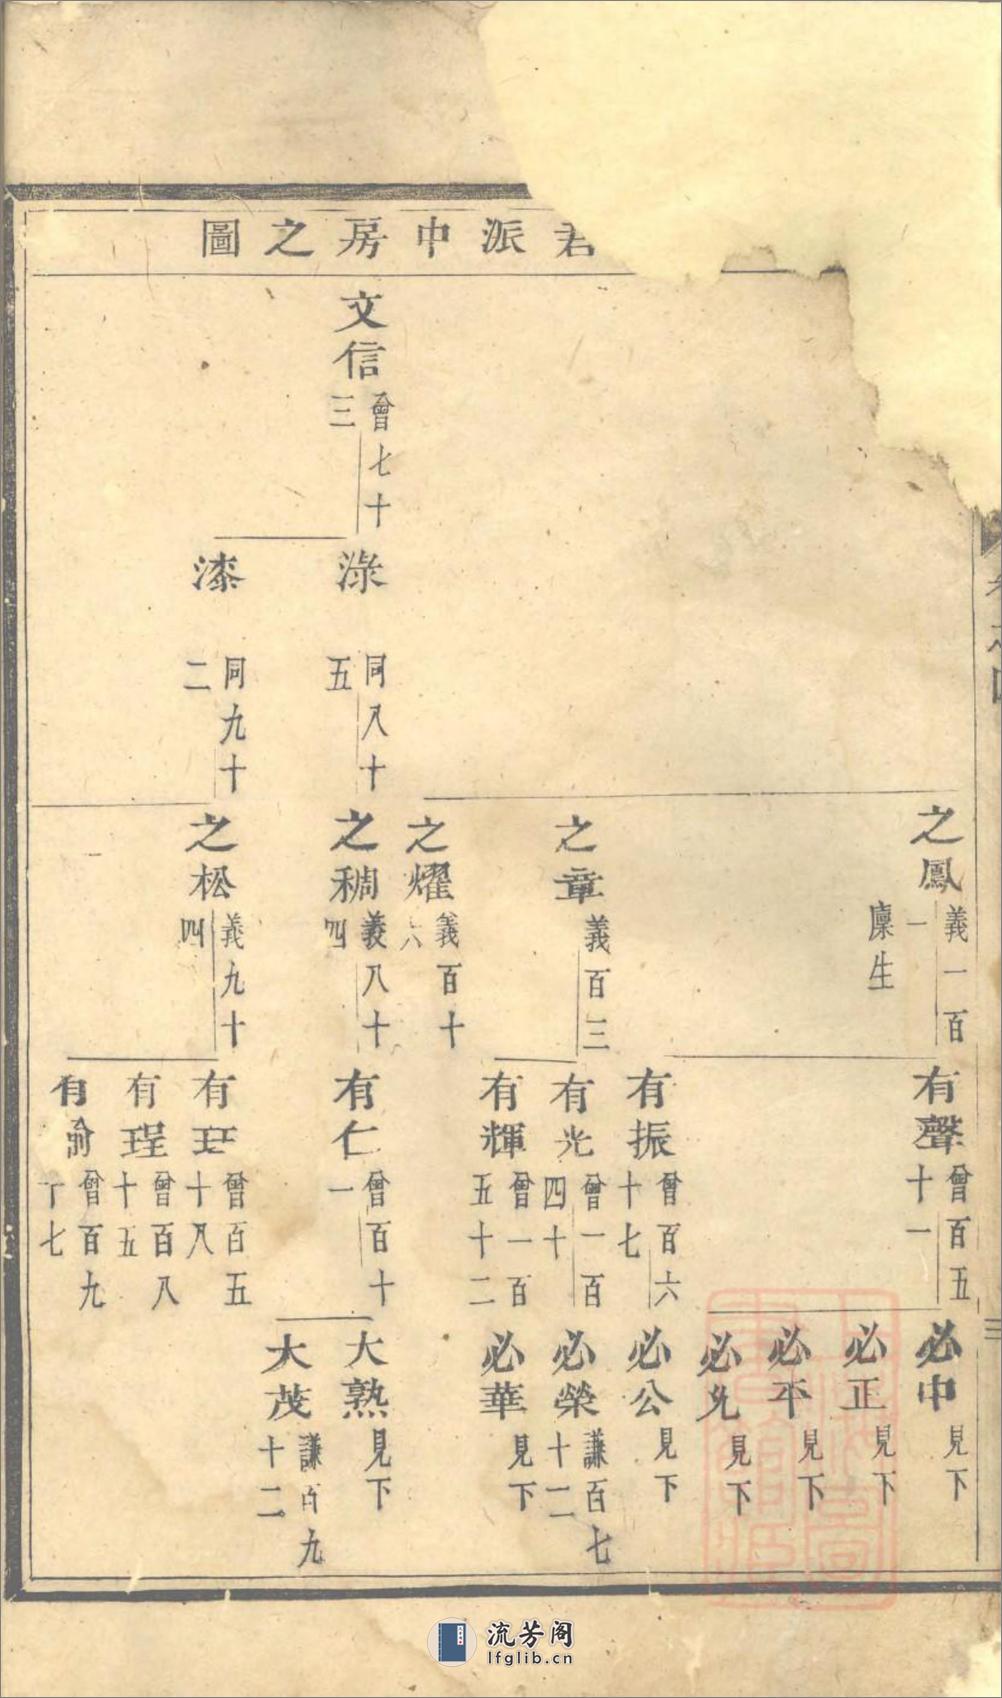 君派中房之圖
文信 曾七十三
淥 同八十五
漆 同九十二
之鳳 義一百一 廩生
之章 義百三
之燿 義百十六
之稠 義八十四
之松 義九十四
有聲 曾百五十一
有振 曾百六十七
有光 曾一百四十
有輝 曾一百五十二
有仁 曾百十一
有 曾百五十八
有珵 曾百八十五
有 曾百九十七
必中 見下
必正 見下
必平 見下
必允 見下
必公 見下
必榮 謙百七十二
必華 見下
大熟 見下
大茂 謙百九十二
卷之四
三
流芳阁
lfglib.cn